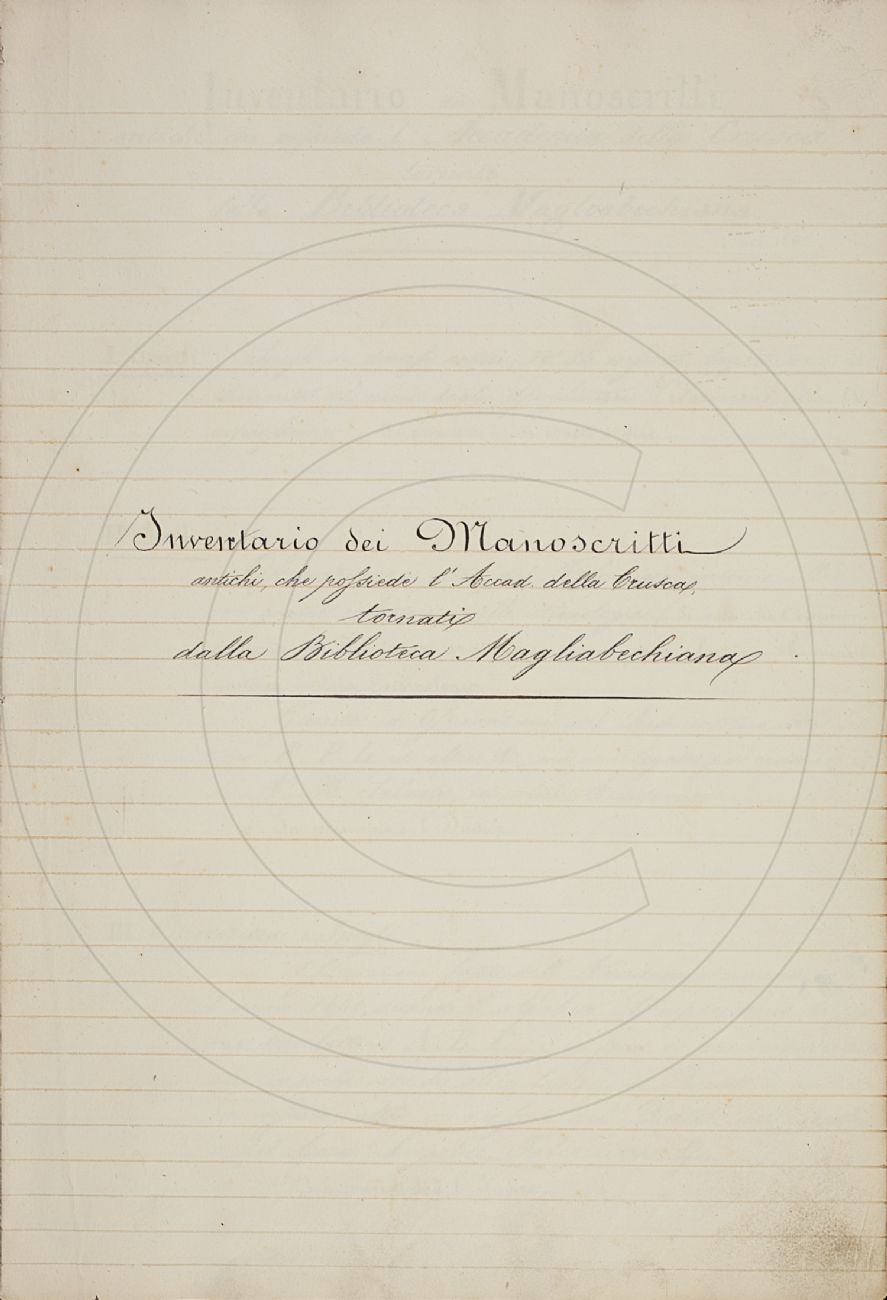 Inventario dei Manoscritti
antichi, che possiede l' Accad. della Crusca,
tornati
dalla Biblioteca Magliabechiana